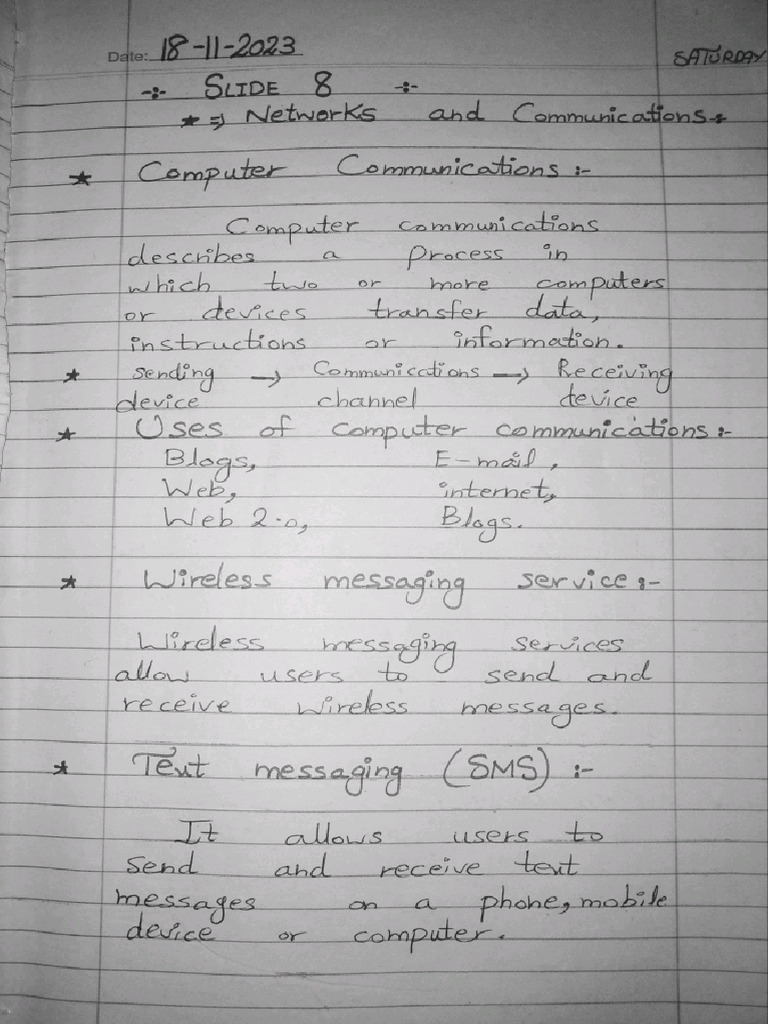 Date: 18-11-2023 SATURDAY
-:- SLIDE 8 -:-
* => Networks and Communications :-
* Computer Communications :-
Computer communications
describes a process in
which two or more computers
or devices transfer data,
instructions or information.
* sending → Communications → Receiving
device channel device
* Uses of computer communications :-
Blogs, E-mail,
Web, internet,
Web 2.0, Blogs.
* Wireless messaging service :-
Wireless messaging services
allow users to send and
receive wireless messages.
* Text messaging (SMS) :-
It allows users to
send and receive text
messages on a phone, mobile
device or computer.